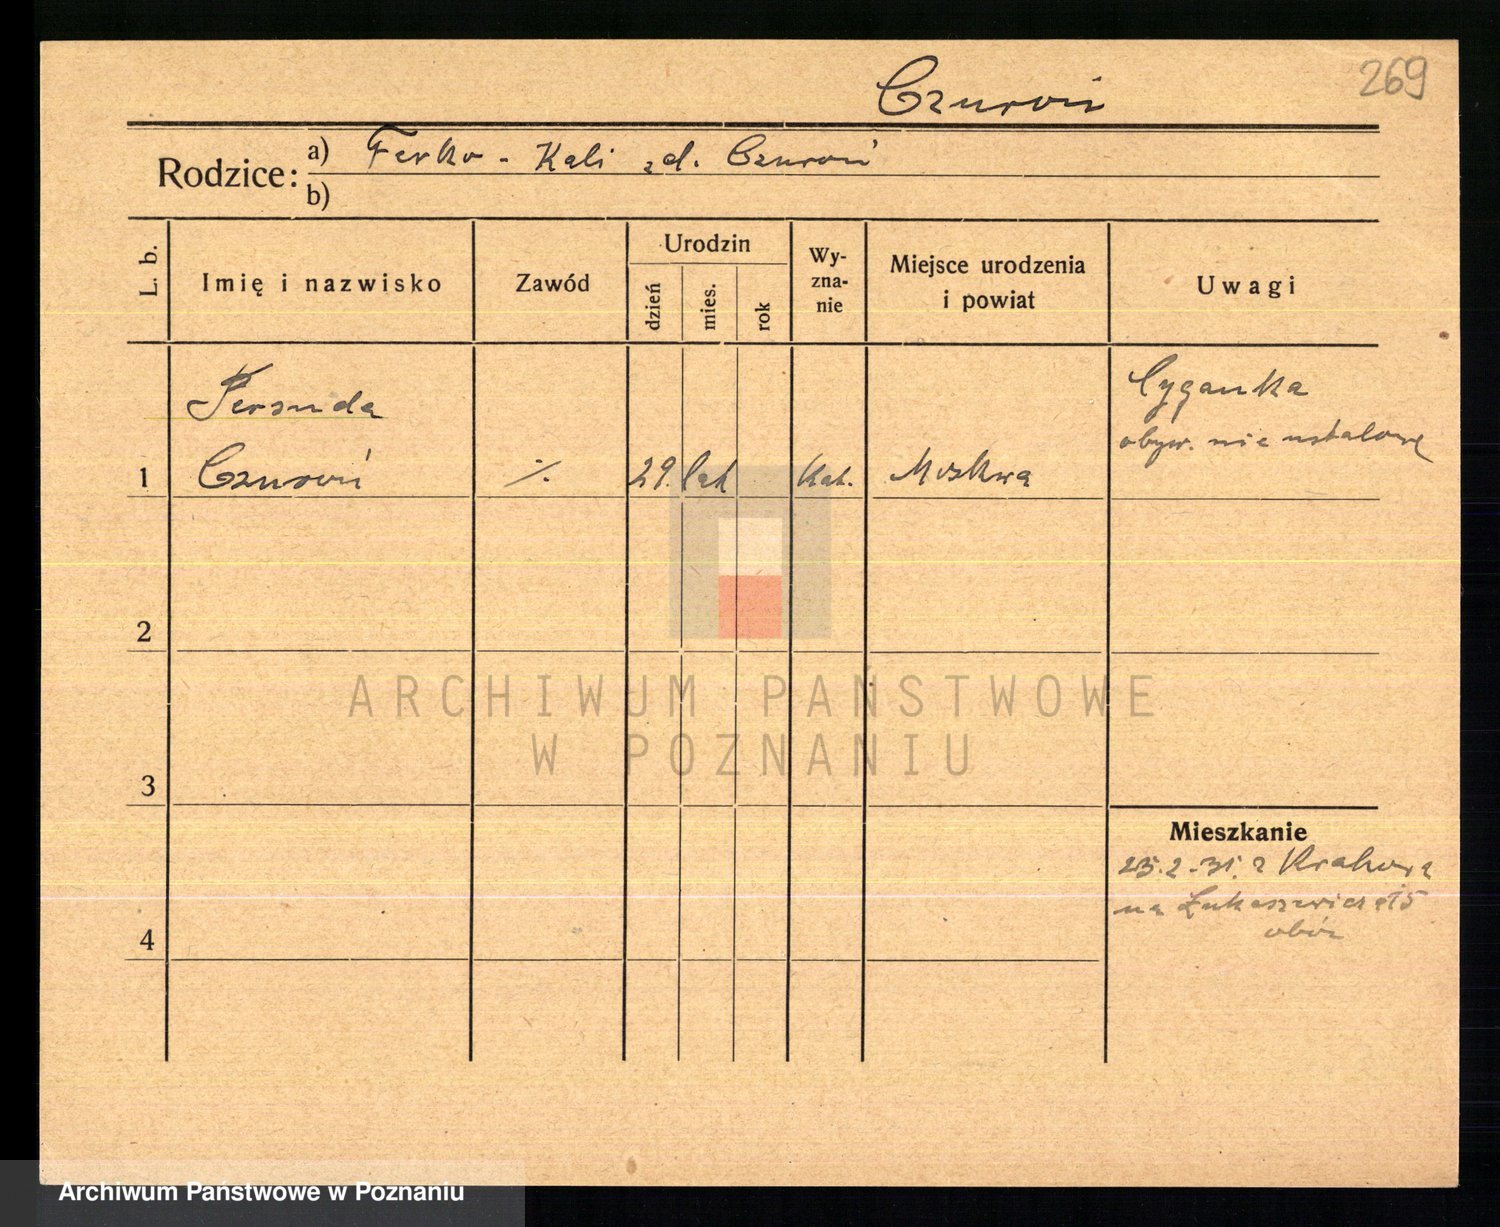 Czuroń
269
Rodzice:
a) Ferko - Kali zd. Czuroń
b)
L. b.
Imię i nazwisko
Zawód
Urodzin
dzień
mies.
rok
Wy-
zna-
nie
Miejsce urodzenia
i powiat
Uwagi
Tersuda
Cyganka
obyw. nie ustalone
1 Czuroń ./. 29 lat Kat. Moskwa
2
ARCHIWUM PAŃSTWOWE
W POZNANIU
3
Mieszkanie
25.2.31. z Krakowa
na Łukaszewicza 15
obóz
4
Archiwum Państwowe w Poznaniu